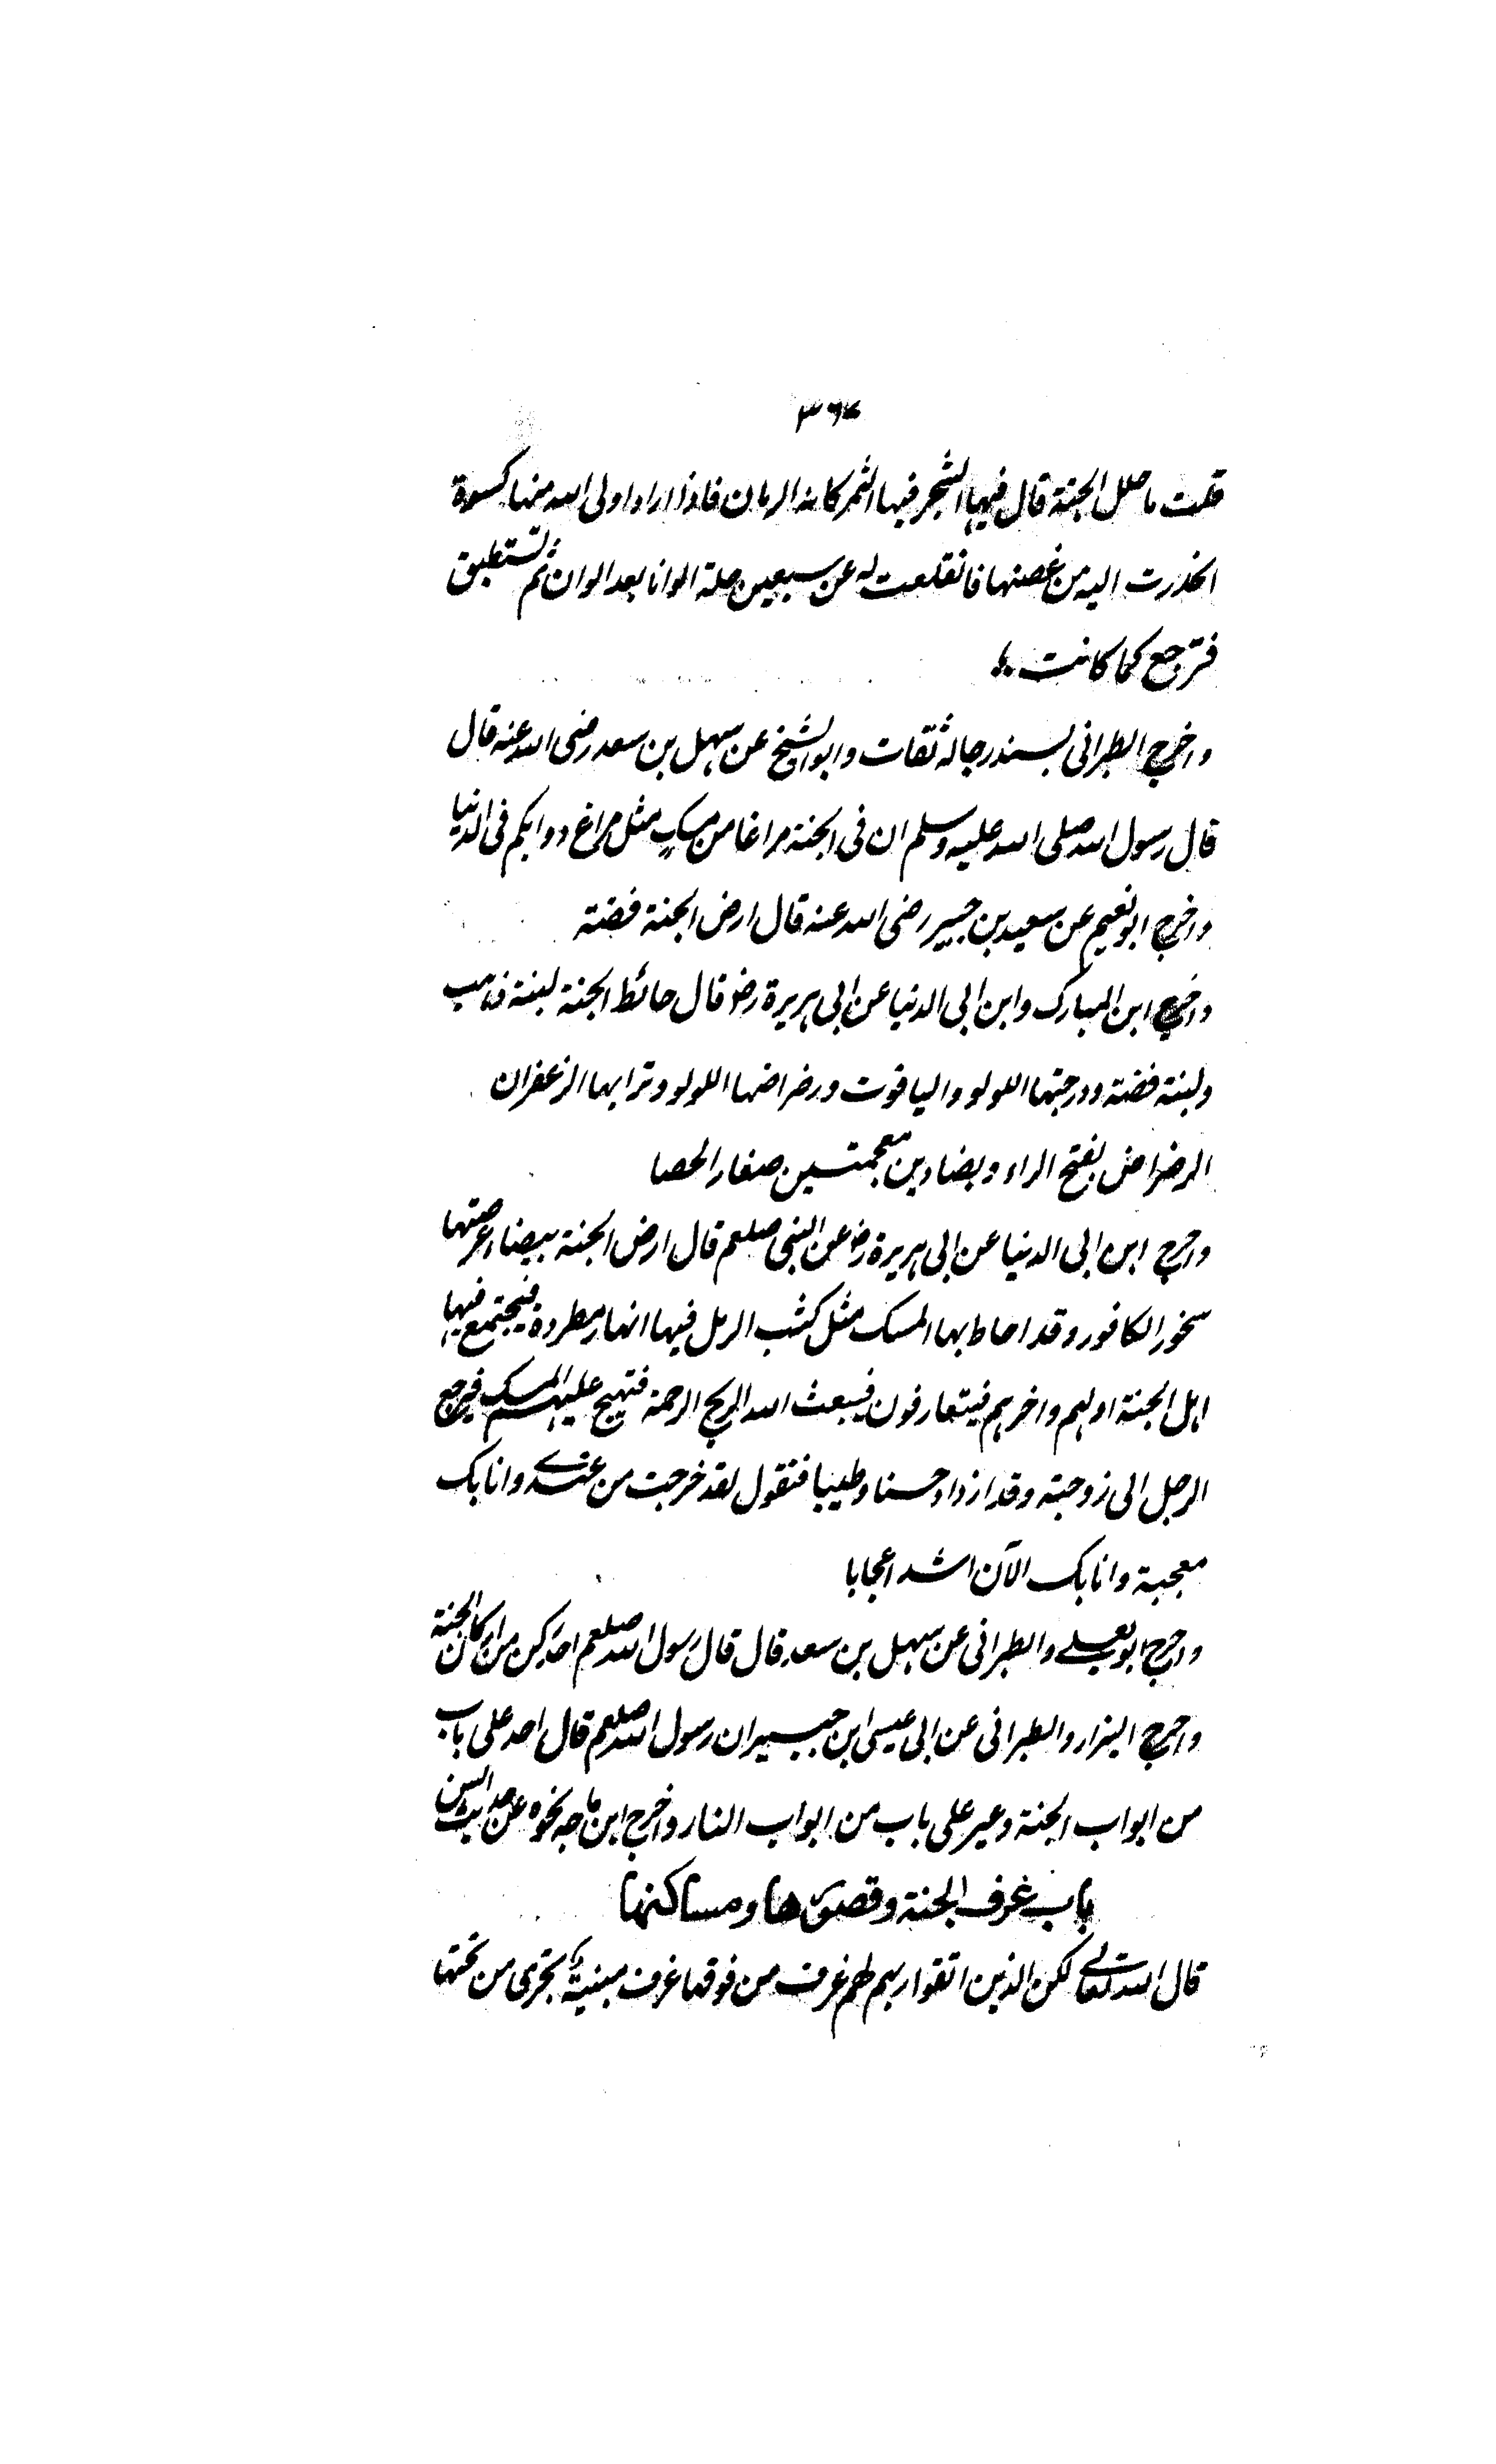 ۳۶۷
قلت ما حلل الجنة قال فیہا الشجر فیہا الثمر کانہ الرمان فاذا اراد ولی اللہ منہا کسوة
انحدرت الیہ من غصنہا فانفلقت لہ عن سبعین حلة الوانا بعد الوان ثم تستطبق
فترجع کما کانت
واخرج الطبرانی بسند رجالہ ثقات وابو الشیخ عن سہل بن سعد رضی اللہ عنہ قال
قال رسول اللہ صلی اللہ علیہ وسلم ان فی الجنة مراغا من مسک مثل مراغ دوابکم فی الدنیا
واخرج ابو نعیم عن سعید بن جبیر رضی اللہ عنہ قال ارض الجنة فضة
واخرج ابن المبارک وابن ابی الدنیا عن ابی ہریرة رض قال حائط الجنة لبنة ذہب
ولبنة فضة ودرجتہا اللولو والیاقوت ورضراضہا اللولو وترابہا الزعفران
الرضراض بفتح الراء وبضادین معجمتین صغار الحصا
واخرج ابن ابی الدنیا عن ابی ہریرة رض عن النبی صلعم قال ارض الجنة بیضاء عرصتہا
سخور الکافور وقد احاط بہا المسک مثل کثب الرمل فیہا انہار مطردة فیجتمع فیہا
اہل الجنة اولہم واخرہم فیتعارفون فیبعث اللہ الریح الرحمة فتہیج علیہم المسک فیرجع
الرجل الی زوجتہ وقد ازداد حسنا وطیبا فتقول لقد خرجت من عندے وانا بک
معجبة وانا بک الآن اشد اعجابا
واخرج ابو یعلے والطبرانی عن سہل بن سعد قال قال رسول اللہ صلعم احد رکن من ارکان الجنة
واخرج البزار والطبرانی عن ابی عیسی ابن جبیر ان رسول اللہ صلعم قال احد علی باب
من ابواب الجنة وعیر علی باب من ابواب النار واخرج ابن ماجہ نحوہ عن حدیث انس
باب غرف الجنة وقصورها ومساکنها
قال اللہ تعالے لکن الذین اتقوا ربہم لہم غرف من فوقہا غرف مبنیة تجری من تحتہا